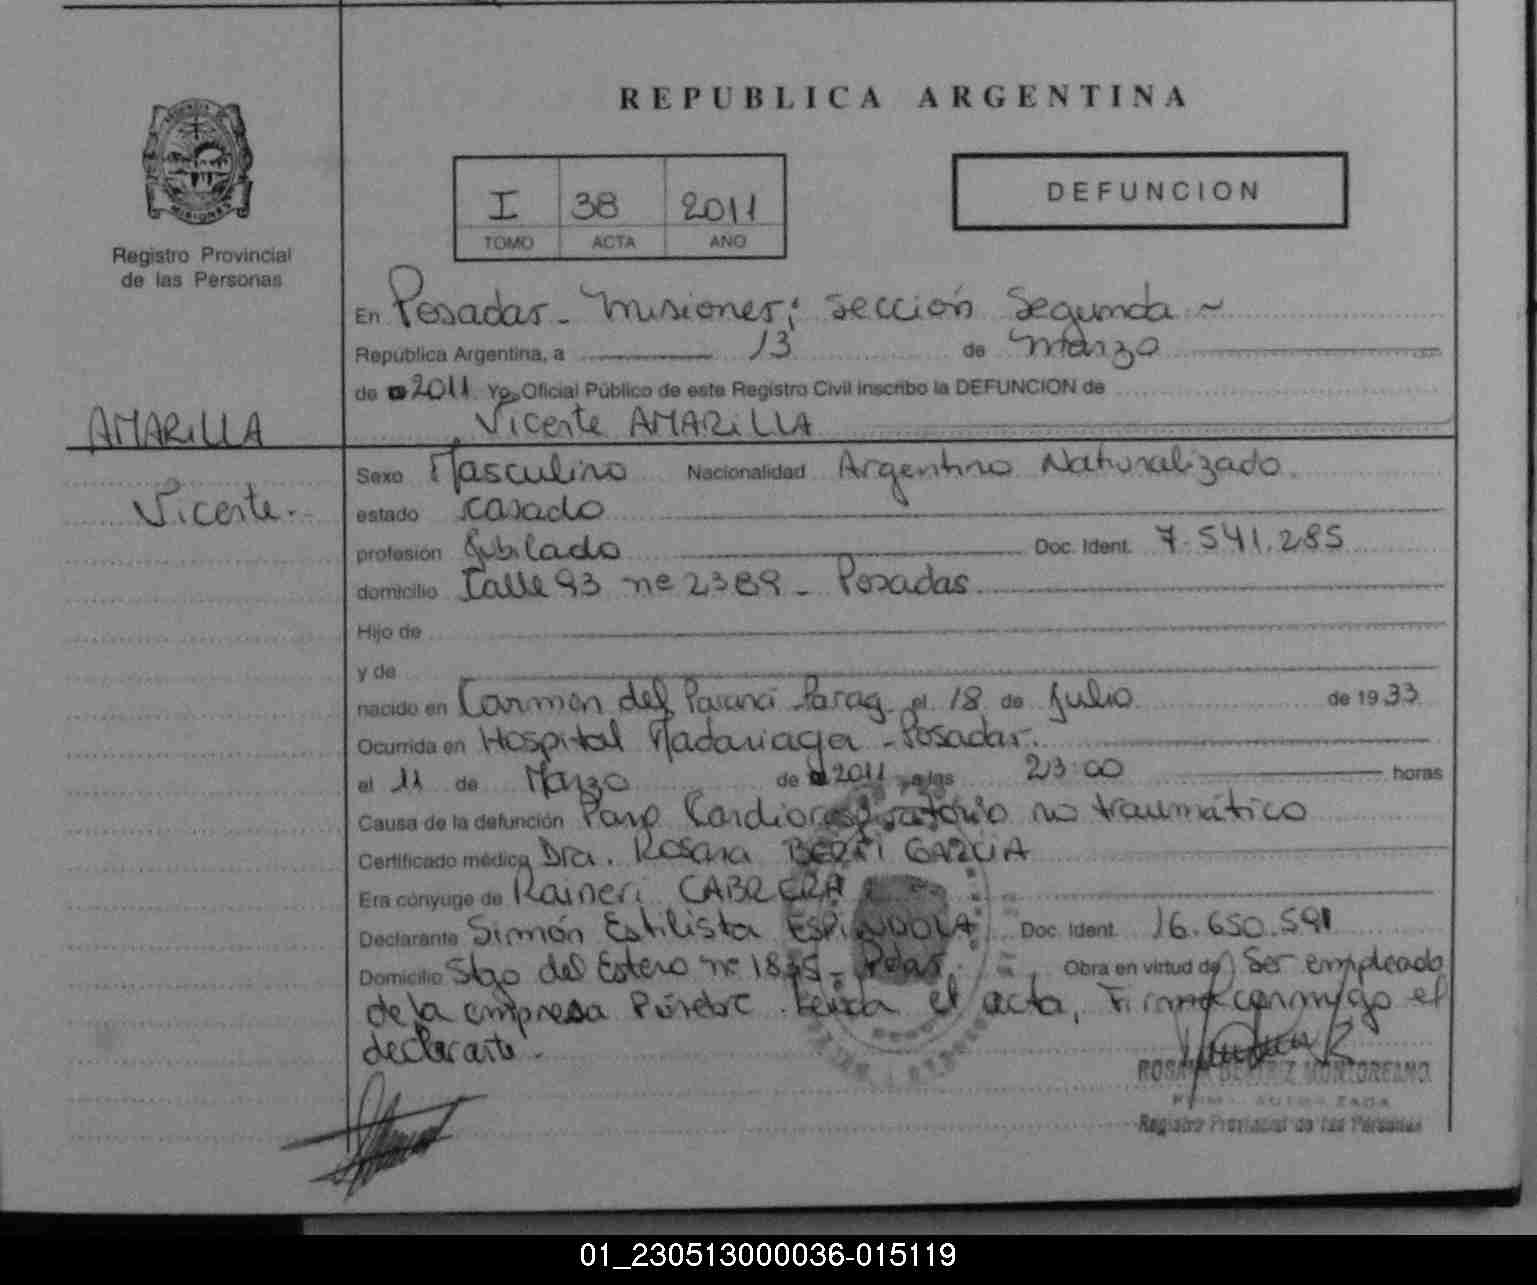 REPUBLICA ARGENTINA
I 38 2011
TOMO ACTA AÑO
DEFUNCION
MISIONES
Registro Provincial
de las Personas
En Posadas - Misiones; sección Segunda ~
República Argentina, a 13 de Marzo
de 2011 Yo, Oficial Público de este Registro Civil inscribo la DEFUNCION de
AMARILLA
Vicente AMARILLA
Vicente.-
Sexo Masculino Nacionalidad Argentino Naturalizado
estado casado
profesión Jubilado Doc. Ident. 7.541.285
domicilio Calle 93 nº 2389 - Posadas
Hijo de
y de
nacido en Carmen del Paraná - Parag. el 18 de Julio de 1933
Ocurrida en Hospital Madariaga - Posadas.
el 11 de Marzo de 2011 a las 23:00 horas
Causa de la defunción Paro Cardiorespiratorio no traumático
Certificado médico Dra. Rosana GARCIA
Era cónyuge de Raineri CABRERA
Declarante Simón Estilista ESPINDOLA Doc. Ident. 16.650.591
Domicilio Stgo del Estero nº - Pdas. Obra en virtud de Ser empleado
de la empresa Fúnebre. Leída el acta, Firma conmigo el
declarante.
ROSANA BEATRIZ MONTOREANO
FIRMA AUTORIZADA
Registro Provincial de las Personas
01_230513000036-015119